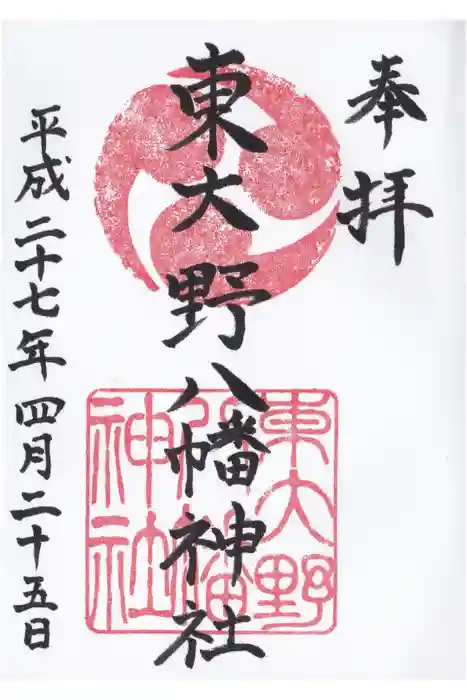 奉拝
東大野八幡神社
平成二十七年四月二十五日
東大野
八幡
神社